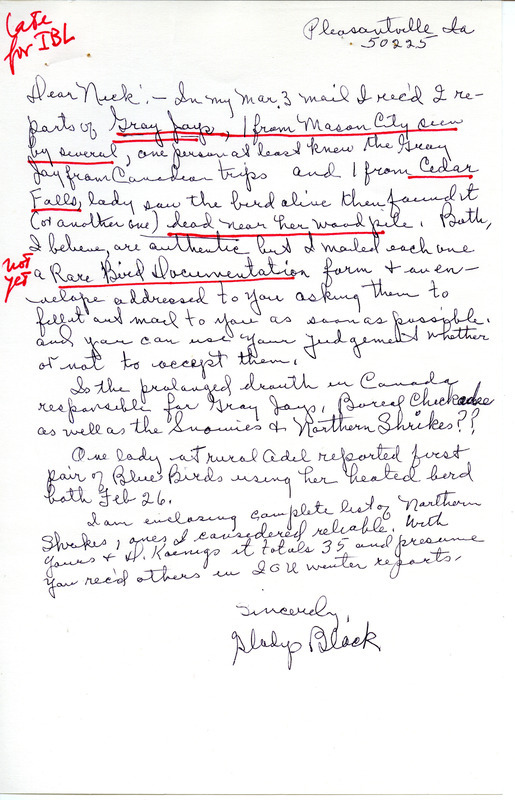 Late
for IBL
Pleasantville Ia
50225
Dear Nick: – In my Mar. 3 mail I rec'd 2 re-
ports of Gray Jays, 1 from Mason City seen
by several, one person at least knew the Gray
Jay from Canadian trips and 1 from Cedar
Falls, lady saw the bird alive then found it
(or another one) dead near her wood pile. Both,
I believe, are authentic but I mailed each one
not
yet
a Rare Bird Documentation form + an en-
velope addressed to you asking them to
fill out and mail to you as soon as possible.
and you can use your judgement whether
or not to accept them.
Is the prolonged drouth in Canada
responsible for Gray Jays, Boreal Chickadee
as well as the Snowies & Northern Shrikes??
One lady at rural Adel reported first
pair of Blue Birds using her heated bird
bath Feb 26.
I am enclosing complete list of Northern
Shrikes, ones I considered reliable. With
yours & D. Koenigs it totals 35 and presume
you rec'd others in IOU winter reports.
Sincerely,
Gladys Black